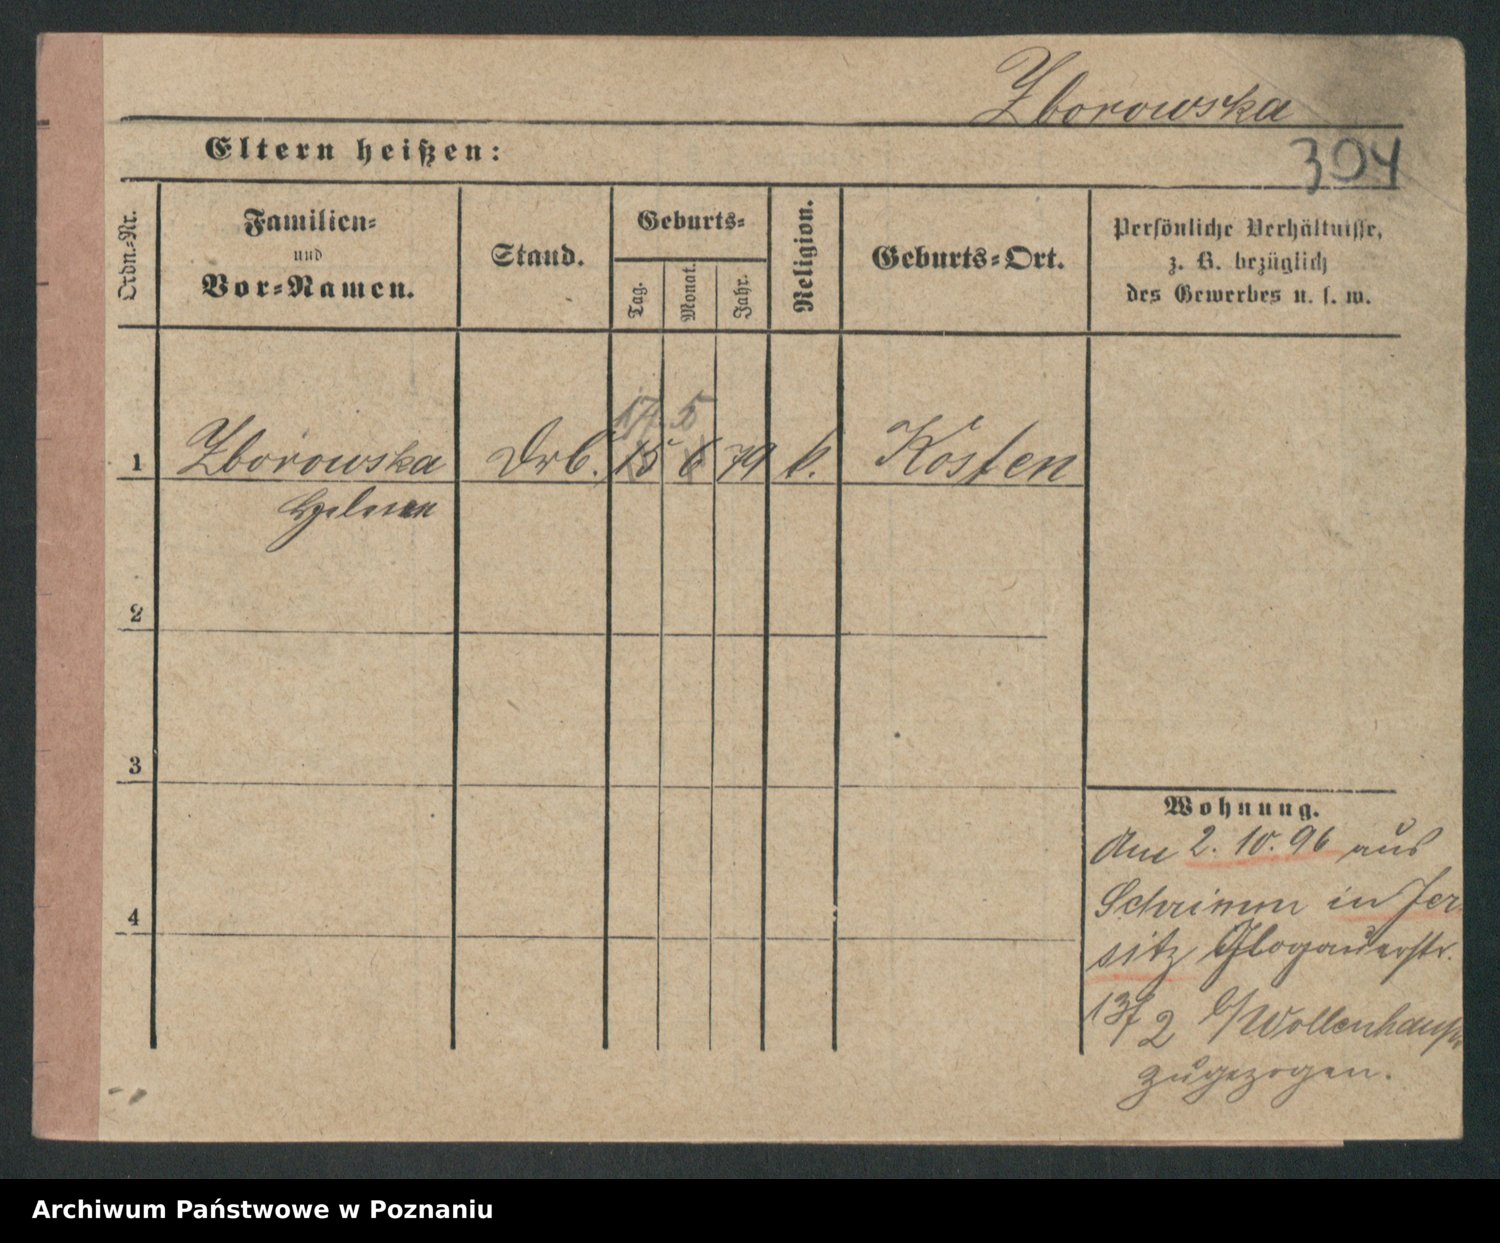 Zborowska
Eltern heißen:
304
Ordn.-Nr.
Familien-
und
Vor-Namen.
Stand.
Geburts-
Tag.
Monat.
Jahr.
Religion.
Geburts-Ort.
Persönliche Verhältnisse,
z. B. bezüglich
des Gewerbes u. s. w.
17 5
1 Zborowska Drb. 15 6 79 k. Kosten
Helene
2
3
4
Wohnung.
Am 2. 10. 96 aus
Schrimm in Jer
sitz Glogauerstr.
137 2 b/Wollenhaupt
zugezogen.
Archiwum Państwowe w Poznaniu